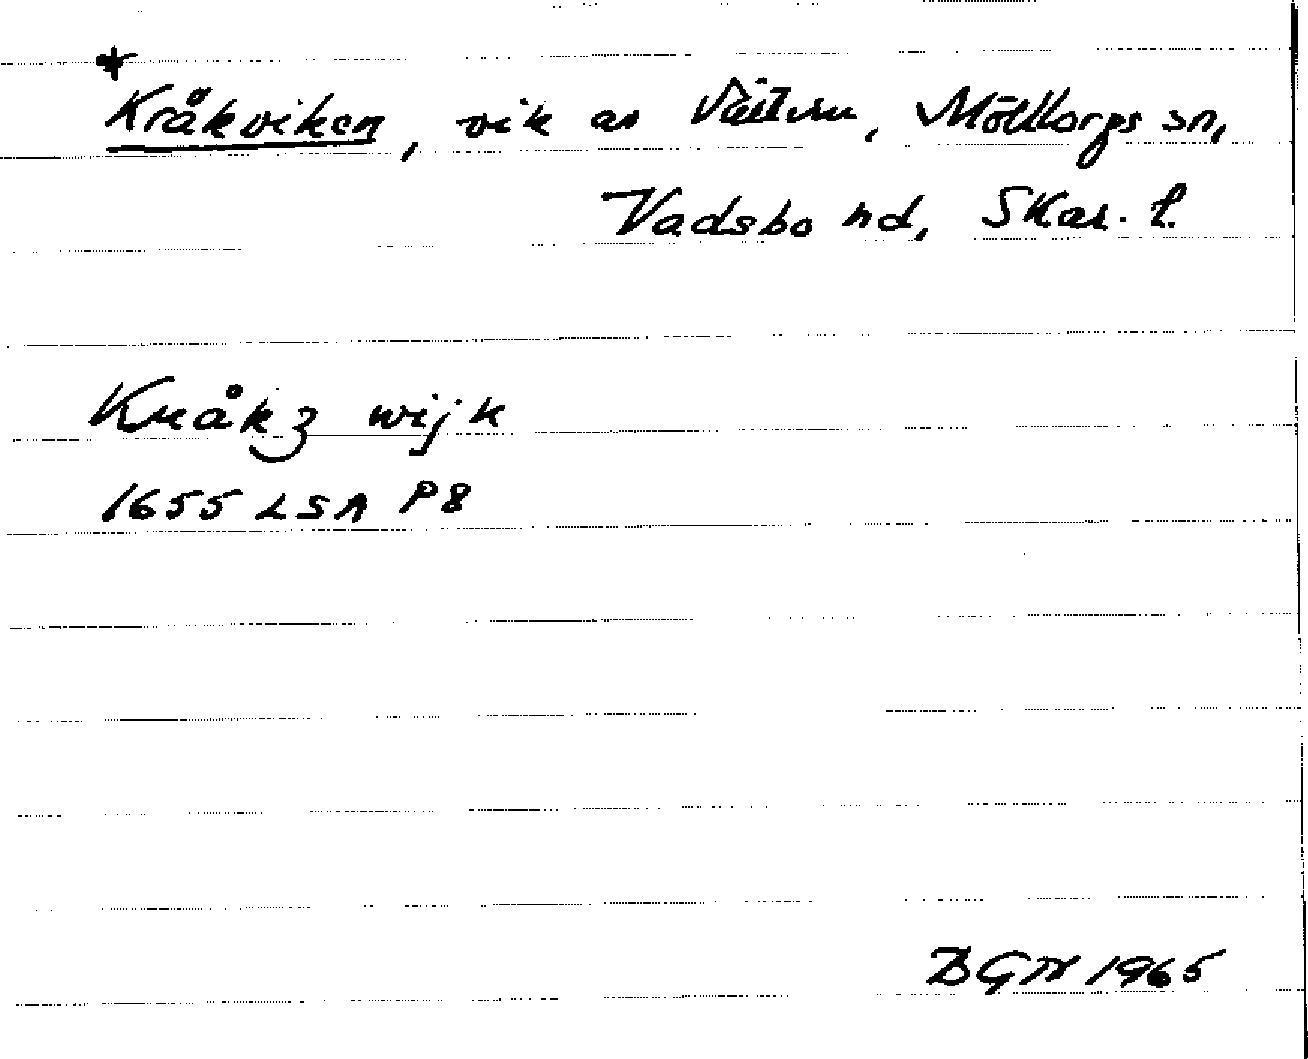 *
Kråkviken, vik av Vättern, Mölltorps sn,
Vadsbo hd, Skar. l.
Knåkz wijk
1655 LSA P8
BGN 1965